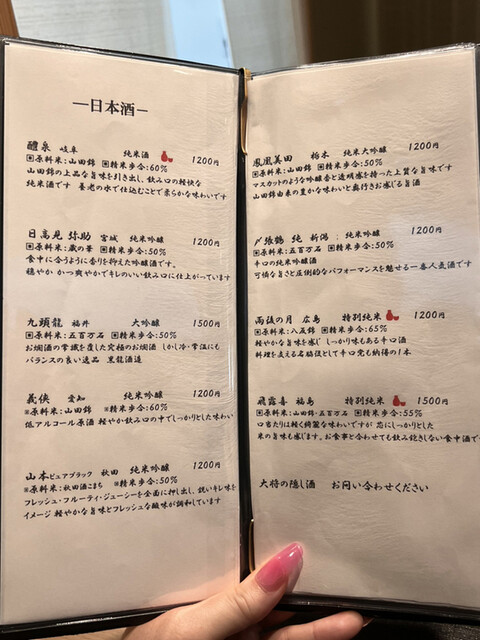 ―日本酒―
醴泉 岐阜 純米酒 1200円
▣原料米:山田錦 ▣精米歩合:60%
山田錦の上品な旨味を引き出し、飲み口の軽快な
純米酒です 養老の水で仕込むことで柔らかな味わいです
日高見 弥助 宮城 純米吟醸 1200円
▣原料米:蔵の華 ▣精米歩合:50%
食中に合うように香りを抑えた吟醸酒です。
穏やか かつ爽やかでキレのいい飲み口に仕上がっています
九頭龍 福井 大吟醸 1500円
▣原料米:五百万石 ▣精米歩合:50%
お燗酒の常識を覆した究極のお燗酒 しかし冷・常温にも
バランスの良い逸品 黒龍酒造
義侠 愛知 純米吟醸 1200円
※原料米:山田錦 ※精米歩合:60%
低アルコール原酒 軽やか飲み口の中でしっかりとした味わい
山本ピュアブラック 秋田 純米吟醸 1200円
※原料米:秋田酒こまち ※精米歩合:50%
フレッシュ・フルーティ・ジューシーを全面に押し出し、鋭いキレ味を
イメージ 軽やかな旨味とフレッシュな酸味が調和しています
鳳凰美田 栃木 純米大吟醸 1200円
▣原料米:山田錦 ▣精米歩合:50%
マスカットのような吟醸香と透明感を持った上質な旨味です
山田錦由来の豊かな味わいと奥行きお感じる旨酒
〆張鶴 純 新潟 純米吟醸 1200円
▣原料米:五百万石 ▣精米歩合:50%
辛口の純米吟醸酒
可憐な旨さと圧倒的なパフォーマンスを魅せる一番人気酒です
雨後の月 広島 特別純米 1200円
▣原料米:八反錦 ▣精米歩合:65%
軽やかな旨味を感じ しっかり味もある辛口酒
料理を支える名脇役として辛口党も納得の1本
飛露喜 福島 特別純米 1500円
▣原料米:山田錦・五百万石 ▣精米歩合:55%
口当たりは軽く綺麗な味わいですが 芯にしっかりとした
米の旨味も感じます。お食事と合わせても飲み飽きしない食中酒で
大将の隠し酒 お問い合わせください